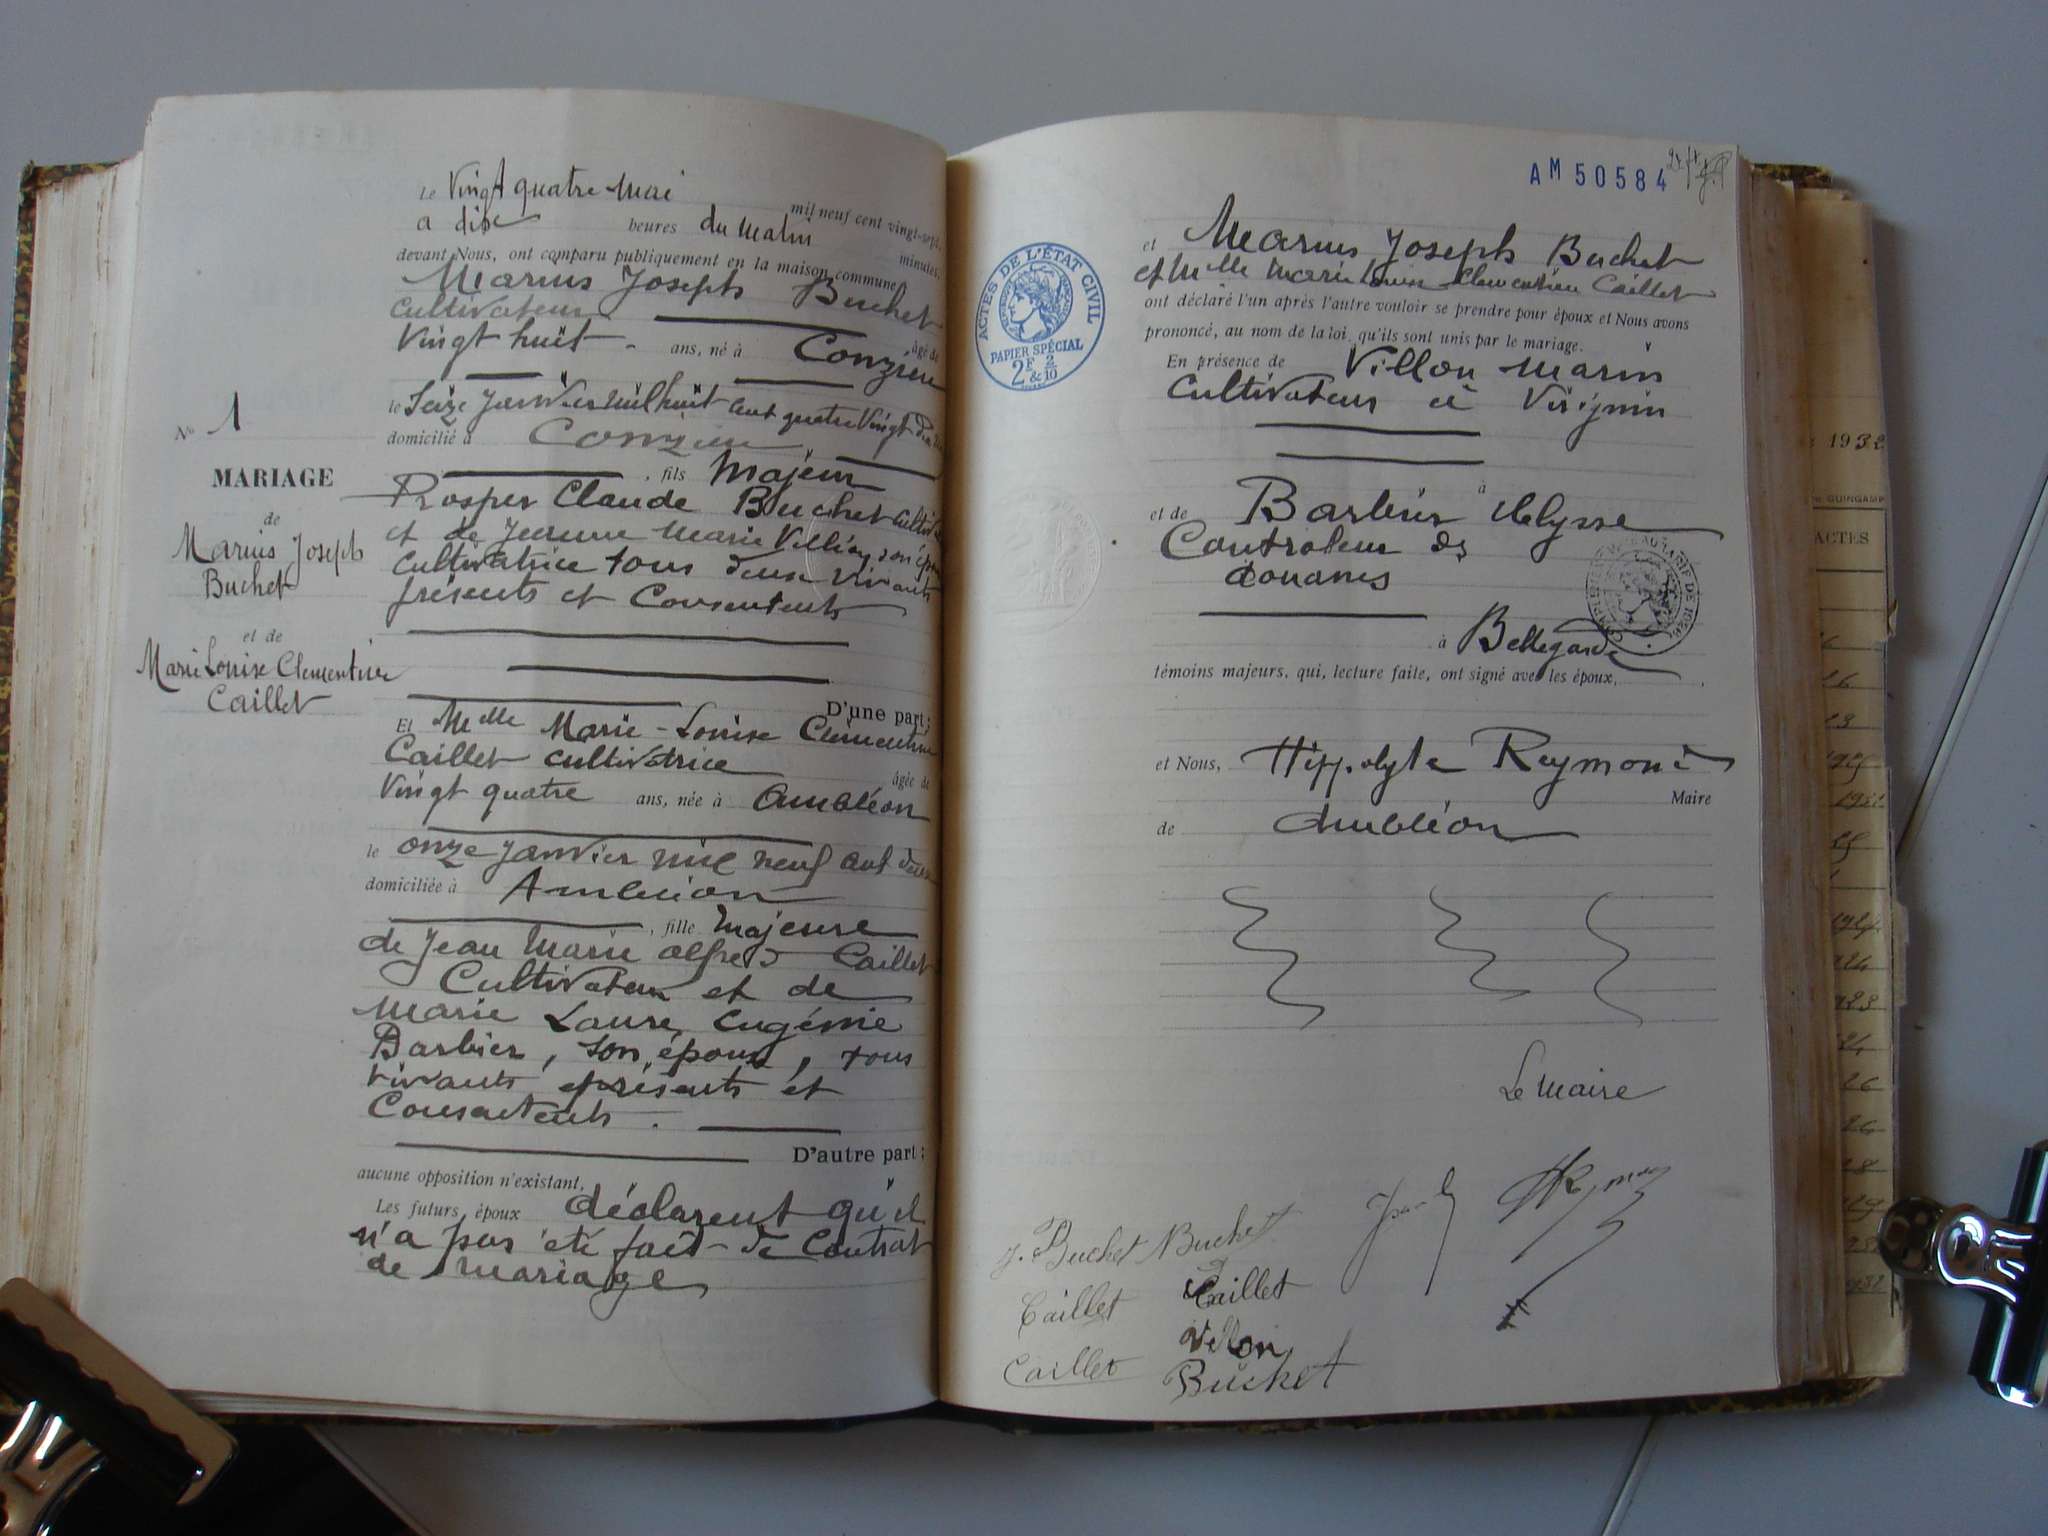 Le Vingt quatre Mai mil neuf cent vingt-sept,
a dix heures du Matin minutes,
devant Nous, ont comparu publiquement en la maison commune
Marius Joseph Buchet
Cultivateur âgé de
Vingt huit ans, né à Conzieu
le Seize Janvier mil huit cent quatre Vingt dix
domicilié à Conzieu
, fils Majeur
Prosper Claude Buchet
et de Jeanne Marie son
Cultivatrice tous deux vivants
présents et Consentents
N° 1
MARIAGE
de
Marius Joseph
Buchet
et de
Marie Louise Clementine
Caillet
D'une part;
Et Melle Marie-Louise Clementine
Caillet cultivatrice âgée de
Vingt quatre ans, née à Ambléon
le onze Janvier mil neuf cent
domiciliée à Ambléon
, fille Majeure
de Jean Marie Alfred Caillet
Cultivateur et de
Marie Laure Eugénie
Barbier, son épouse, tous
vivants et présents et
Consentents.
D'autre part;
aucune opposition n'existant,
Les futurs époux déclarent qu'il
n'a pas été fait de Contrat
de Mariage
AM 50584
et Marius Joseph Buchet
et Melle Marie Louise Clementine Caillet
ont déclaré l'un après l'autre vouloir se prendre pour époux et Nous avons
prononcé, au nom de la loi, qu'ils sont unis par le mariage.
ACTES DE L'ÉTAT CIVIL
PAPIER SPÉCIAL
2F 2/10
En présence de Villon Marin
Cultivateur à Virignin
à
et de Barbier Ulysse
Controleur des
douanes
à Bellegarde
témoins majeurs, qui, lecture faite, ont signé avec les époux,
et Nous, Hippolyte Reymond
Maire
de Ambléon
Le Maire
J. Buchet Buchet
Caillet Caillet
Villon
Caillet Buchet
1932
GUINGAMP
ACTES